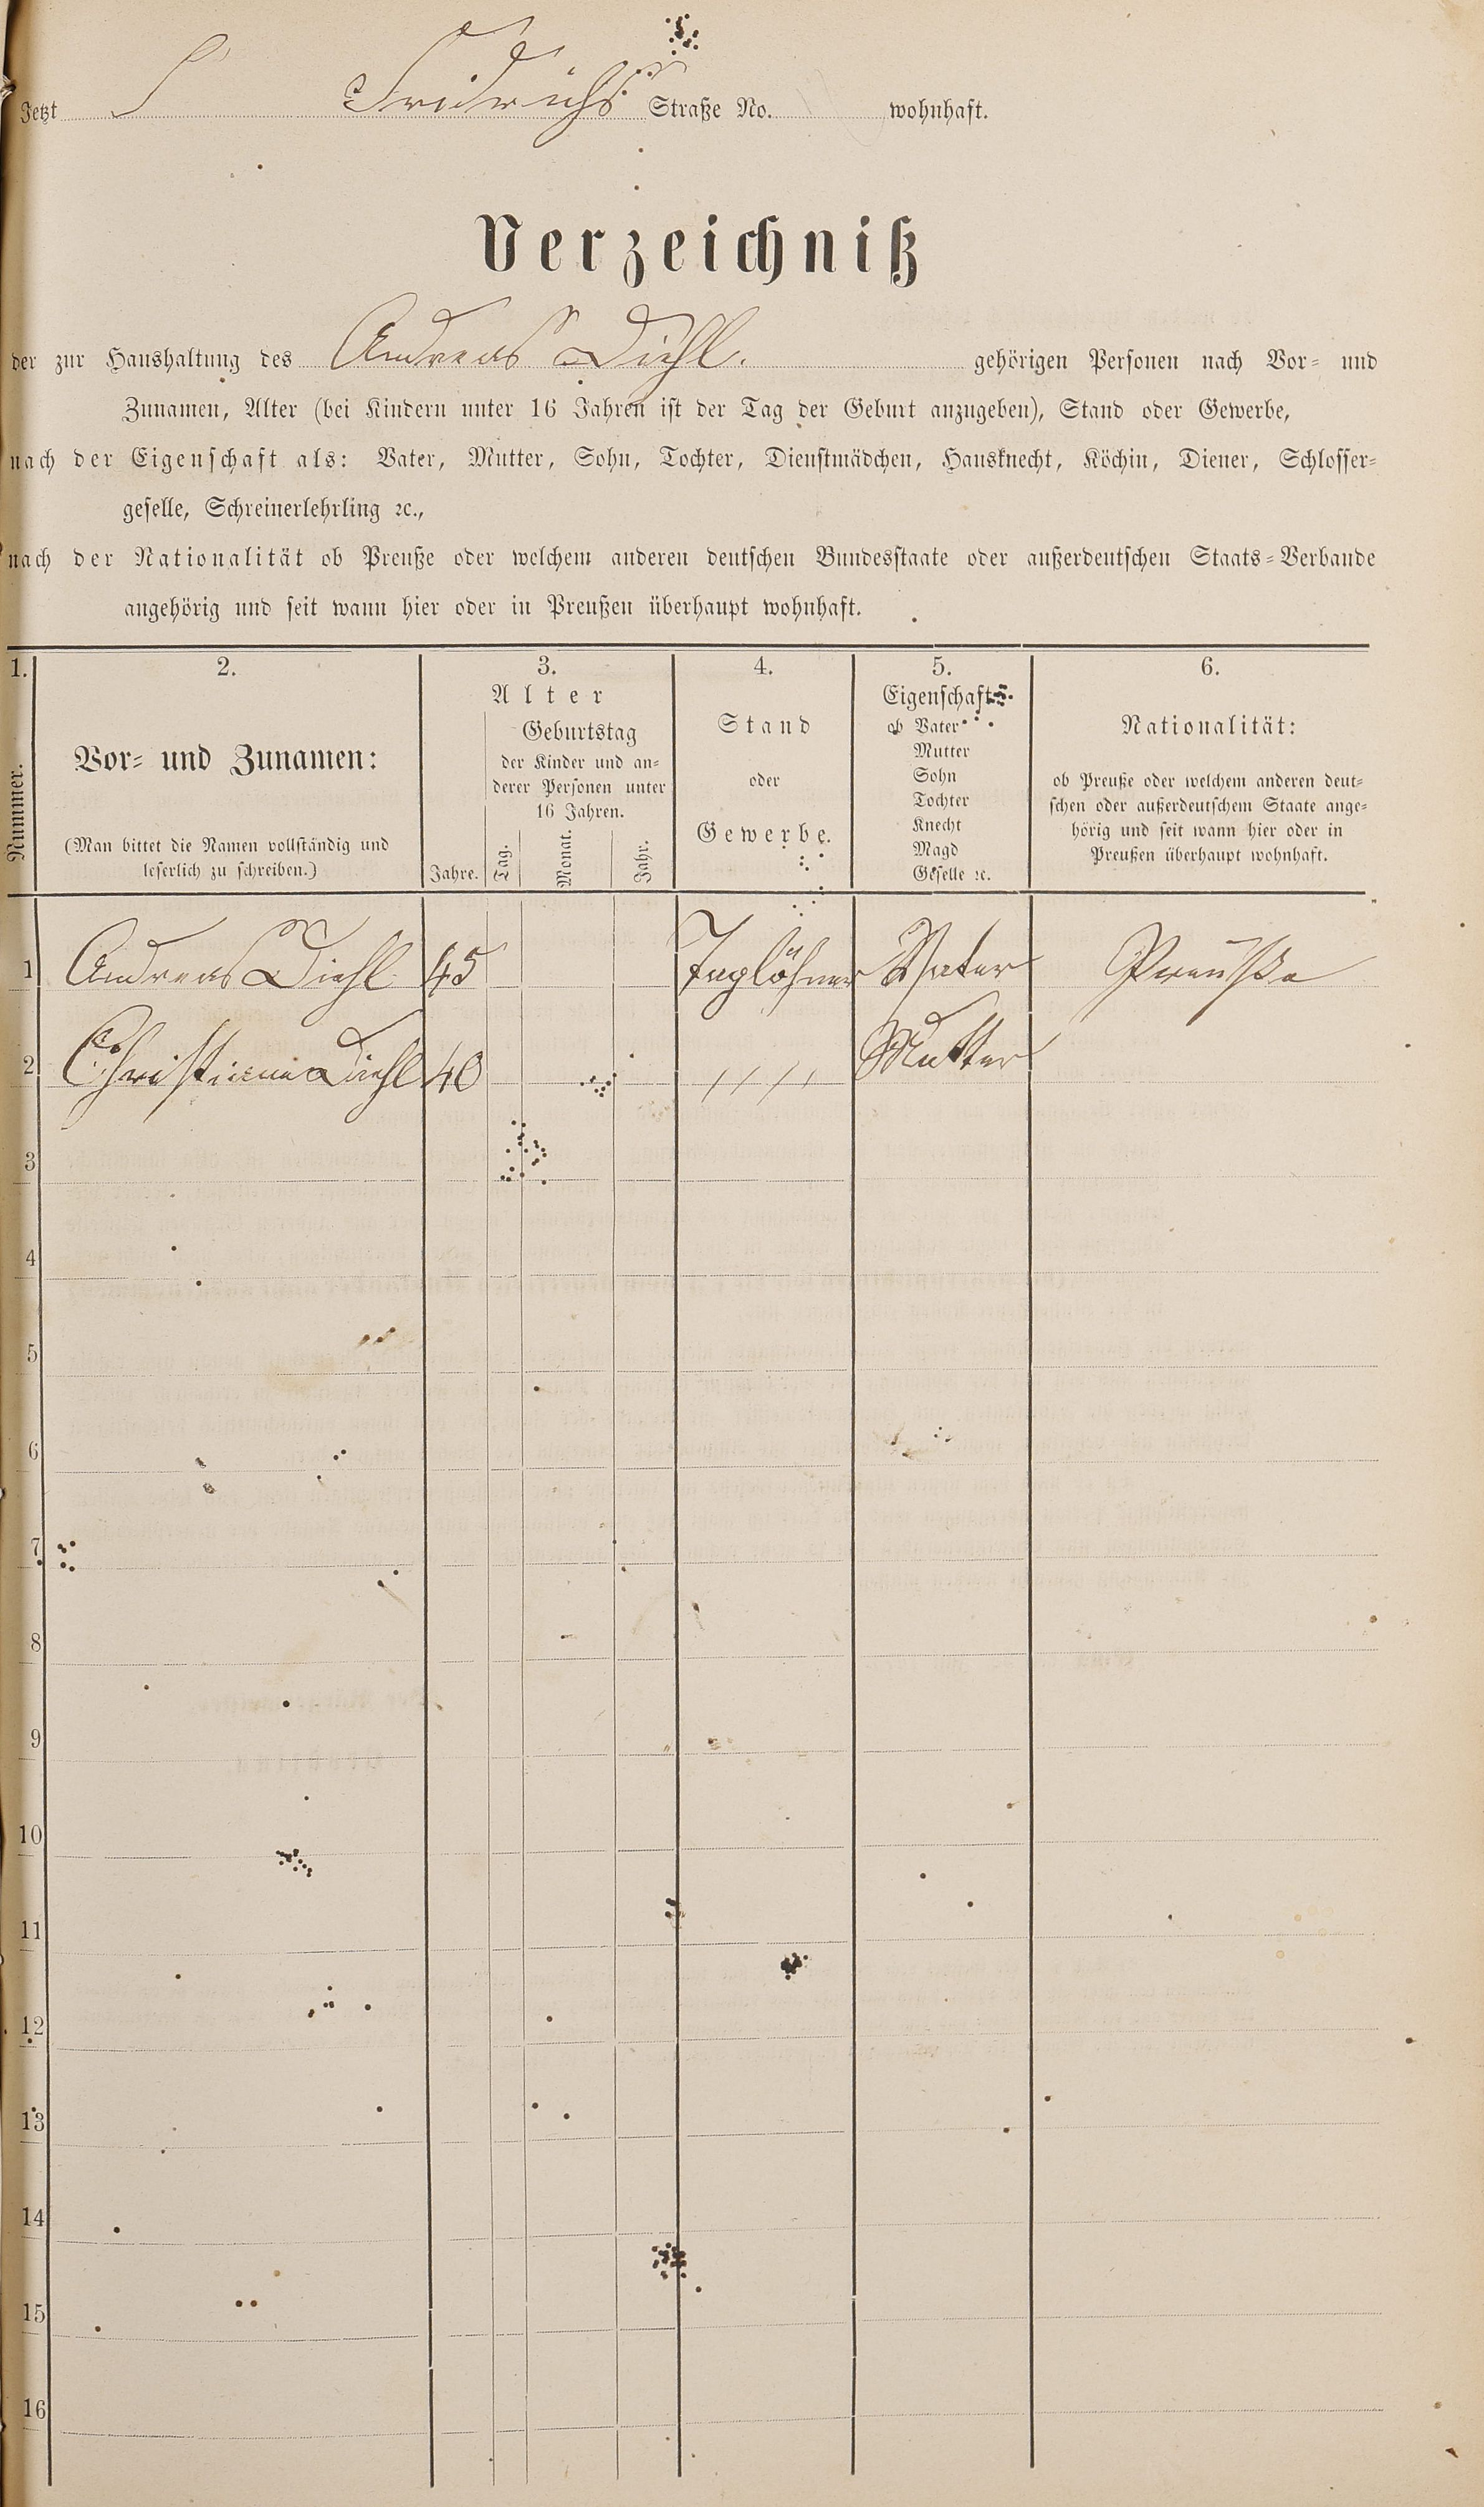 Jetzt Fridrichs Straße No. wohnhaft.
Verzeichniß
der zur Haushaltung des Andreas Diehl. gehörigen Personen nach Vor- und
Zunamen, Alter (bei Kindern unter 16 Jahren ist der Tag der Geburt anzugeben), Stand oder Gewerbe,
nach der Eigenschaft als: Vater, Mutter, Sohn, Tochter, Dienstmädchen, Hausknecht, Köchin, Diener, Schlosser-
geselle, Schreinerlehrling ꝛc.,
nach der Nationalität ob Preuße oder welchem anderen deutschen Bundesstaate oder außerdeutschen Staats-Verbande
angehörig und seit wann hier oder in Preußen überhaupt wohnhaft.
1.
Nummer.
2.
Vor- und Zunamen:
(Man bittet die Namen vollständig und
leserlich zu schreiben.)
3.
Alter
Jahre.
Geburtstag
der Kinder und an-
derer Personen unter
16 Jahren.
Tag.
Monat.
Jahr.
4.
Stand
oder
Gewerbe.
5.
Eigenschaft
ob Vater
Mutter
Sohn
Tochter
Knecht
Magd
Geselle ꝛc.
6.
Nationalität:
ob Preuße oder welchem anderen deut-
schen oder außerdeutschem Staate ange-
hörig und seit wann hier oder in
Preußen überhaupt wohnhaft.
1 Andreas Diehl 45 Taglöhner Vater Preuße
2 Christiane Diehl 40 ,, ,, Mutter
3
4
5
6
7
8
9
10
11
12
13
14
15
16